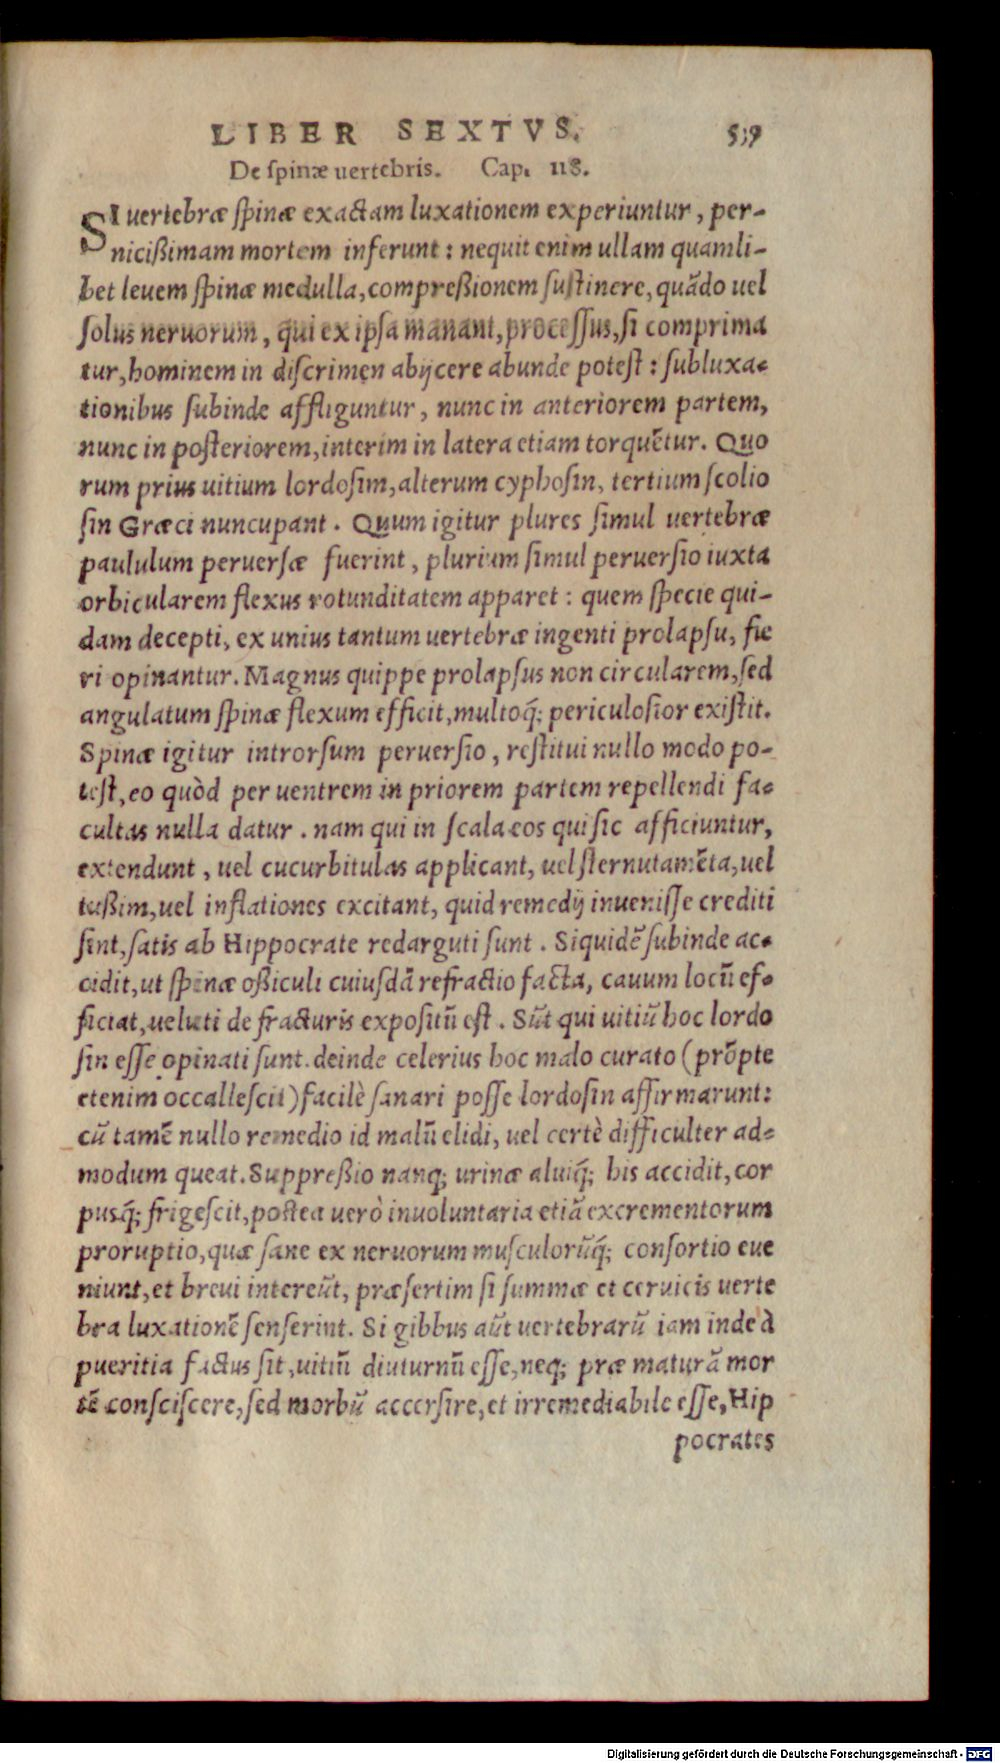 LIBER SEXTVS. 539
De spinæ uertebris. Cap. 118.
SI uertebræ spinæ exactam luxationem experiuntur, per-
nicißimam mortem inferunt: nequit enim ullam quamli-
bet leuem spinæ medulla, compreßionem sustinere, quãdo uel
solus neruorum, qui ex ipsa manant, processus, si comprima
tur, hominem in discrimen abijcere abunde potest: subluxa-
tionibus subinde affliguntur, nunc in anteriorem partem,
nunc in posteriorem, interim in latera etiam torquẽtur. Quo
rum prius uitium lordosim, alterum cyphosin, tertium scolio
sin Græci nuncupant. Quum igitur plures simul uertebræ
paululum peruersæ fuerint, plurium simul peruersio iuxta
orbicularem flexus rotunditatem apparet: quem specie qui-
dam decepti, ex unius tantum uertebræ ingenti prolapsu, fie
ri opinantur. Magnus quippe prolapsus non circularem, sed
angulatum spinæ flexum efficit, multoq́; periculosior existit.
Spinæ igitur introrsum peruersio, restitui nullo modo po-
test, eo quòd per uentrem in priorem partem repellendi fa-
cultas nulla datur. nam qui in scala eos qui sic afficiuntur,
extendunt, uel cucurbitulas applicant, uel sternutamẽta, uel
tußim, uel inflationes excitant, quid remedij inuenisse crediti
sint, satis ab Hippocrate redarguti sunt. Siquidẽ subinde ac-
cidit, ut spinæ oßiculi cuiusdã refractio facta, cauum locũ ef-
ficiat, ueluti de fracturis expositũ est. Sũt qui uitiũ hoc lordo
sin esse opinati sunt. deinde celerius hoc malo curato (prõpte
etenim occallescit) facilè sanari posse lordosin affirmarunt:
cũ tamẽ nullo remedio id malũ elidi, uel certè difficulter ad-
modum queat. Suppreßio nanq; urinæ aluiq́; his accidit, cor
pusq́; frigescit, postea uerò inuoluntaria etiã excrementorum
proruptio, quæ sane ex neruorum musculorũq́; consortio eue
niunt, et breui intereũt, præsertim si summæ et ceruicis uerte
bra luxationẽ senserint. Si gibbus aũt uertebrarũ iam inde à
pueritia factus sit, uitiũ diuturnũ esse, neq; præ maturã mor
tẽ consciscere, sed morbũ accersire, et irremediabile esse, Hip
pocrates
Digitalisierung gefördert durch die Deutsche Forschungsgemeinschaft - DFG